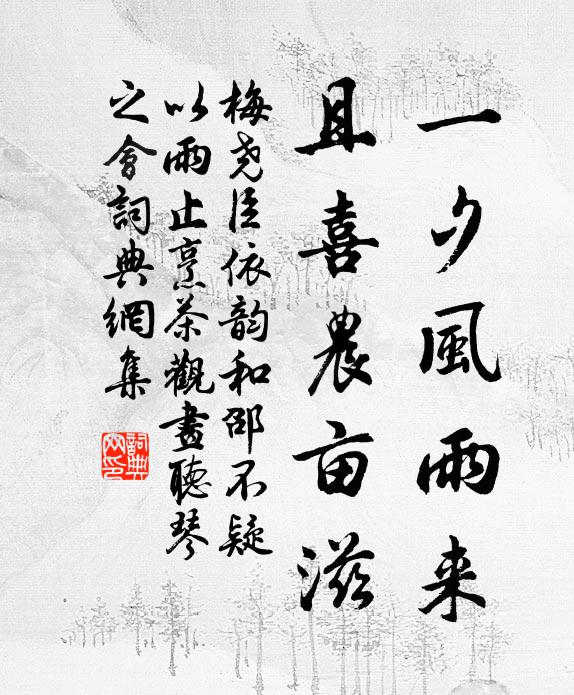 一夕風雨来
且喜農亩滋
梅尧臣依韵和邵不疑
以雨止烹茶觀畫聽琴
之會詞典網集
詞典網印